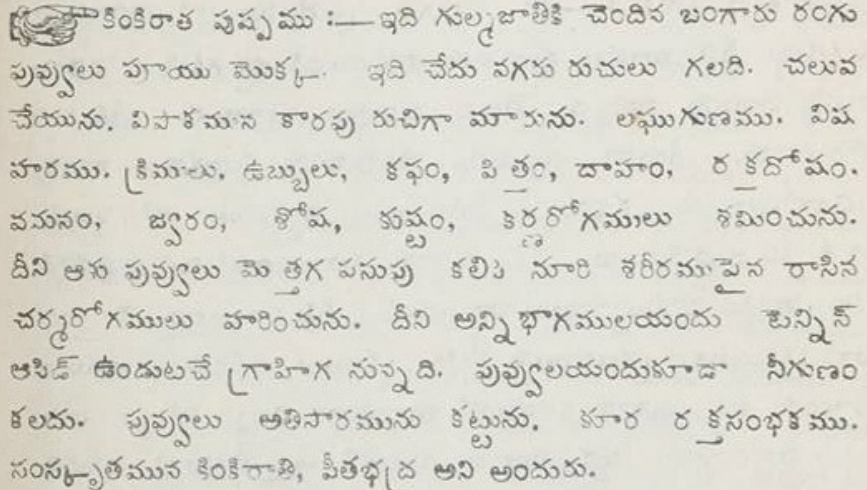 కింకిరాత పుష్పము :— ఇది గుల్మజాతికి చెందిన బంగారు రంగు
పువ్వులు పూయు మొక్క. ఇది చేదు వగరు రుచులు గలది. చలువ
చేయును. విపాకమున కారపు రుచిగా మారును. లఘుగుణము. విష
హరము. క్రిములు, ఉబ్బులు, కఫం, పిత్తం, దాహం, రక్తదోషం.
వమనం, జ్వరం, శోష, కుష్టం, కర్ణరోగములు శమించును.
దీని ఆకు పువ్వులు మెత్తగ పసుపు కలిపి నూరి శరీరముపైన రాసిన
చర్మరోగములు హరించును. దీని అన్నిభాగములయందు టెన్నిన్
ఆసిడ్ ఉండుటచే గ్రాహిగ నున్నది. పువ్వులయందుకూడా నీగుణం
కలదు. పువ్వులు అతిసారమును కట్టును. కూర రక్తసంభకము.
సంస్కృతమున కింకిరాతి, పీతభద్ర అని అందురు.